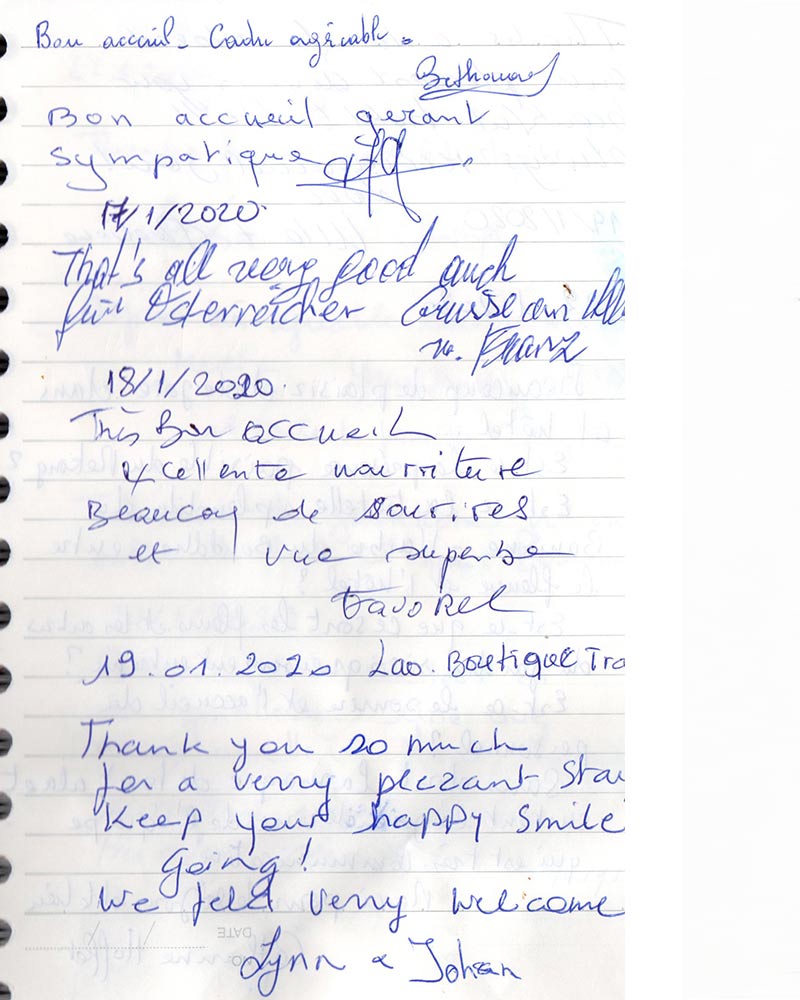 Bon accueil - Cadre agréable.
Bon accueil gerant
sympatique
17/1/2020
That's all very good auch
für Österreicher Grüsse an
Franz
18/1/2020.
Très Bon accueil
excellente nourriture
Beaucoup de sourires
et vue superbe
Favorel
19.01.2020 Lao. Boutique Tra
Thank you so much
for a verry plezant Stay
Keep your happy Smile
going!
We feld verry welcome
DATE
Lynn & Johan